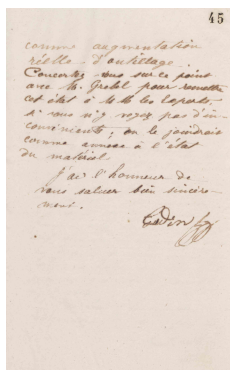 45
comme augmentation
réelle d'outillage.
Concertez vous sur ce point
avec M. Grebel pour remettre
cet état à MM les experts
si vous n'y voyez pas d'in-
convénients; on le joindrait
comme annexe à l'état
du matériel
J'ai l'honneur de
vous saluer bien sincère-
ment.
Godin